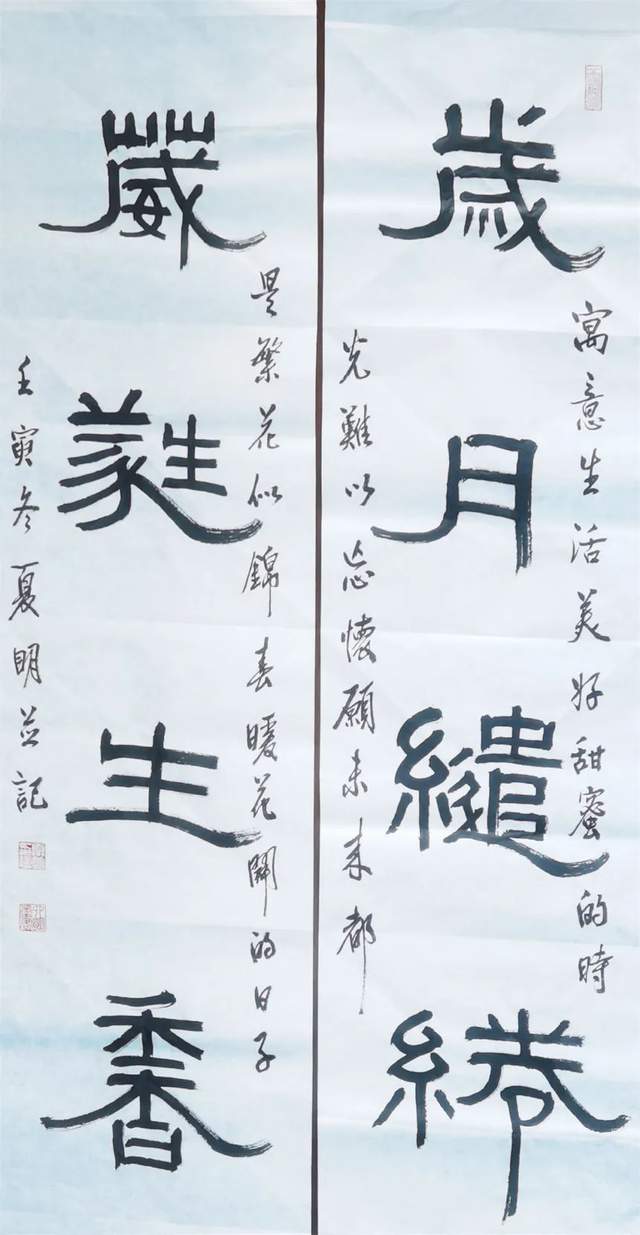 歲月繾綣
葳蕤生香
寓意生活美好甜蜜的時
光難以忘懷願未來都
是繁花似錦春暖花開的日子
壬寅冬夏明並記